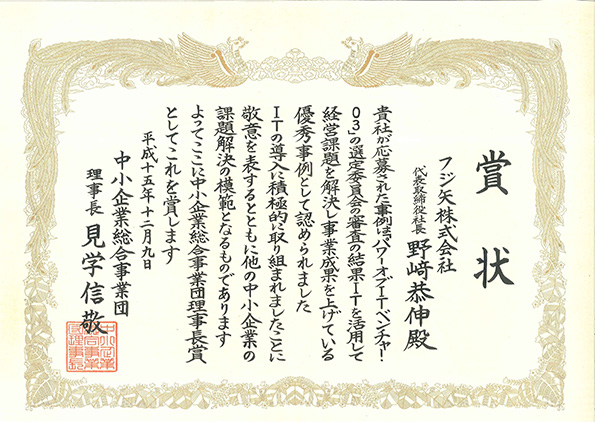 賞状
フジ矢株式会社
代表取締役社長 野﨑恭伸殿
貴社が応募された事例はパワーオブITベンチャー・
03」の選定委員会の審査の結果ITを活用して
経営課題を解決し事業成果を上げている
優秀事例として認められました
ITの導入に積極的に取り組まれましたことに
敬意を表するとともに他の中小企業の
課題解決の模範となるものであります
よってここに中小企業総合事業団理事長賞
としてこれを賞します
平成十五年十二月九日
中小企業総合事業団
理事長 見学信敬